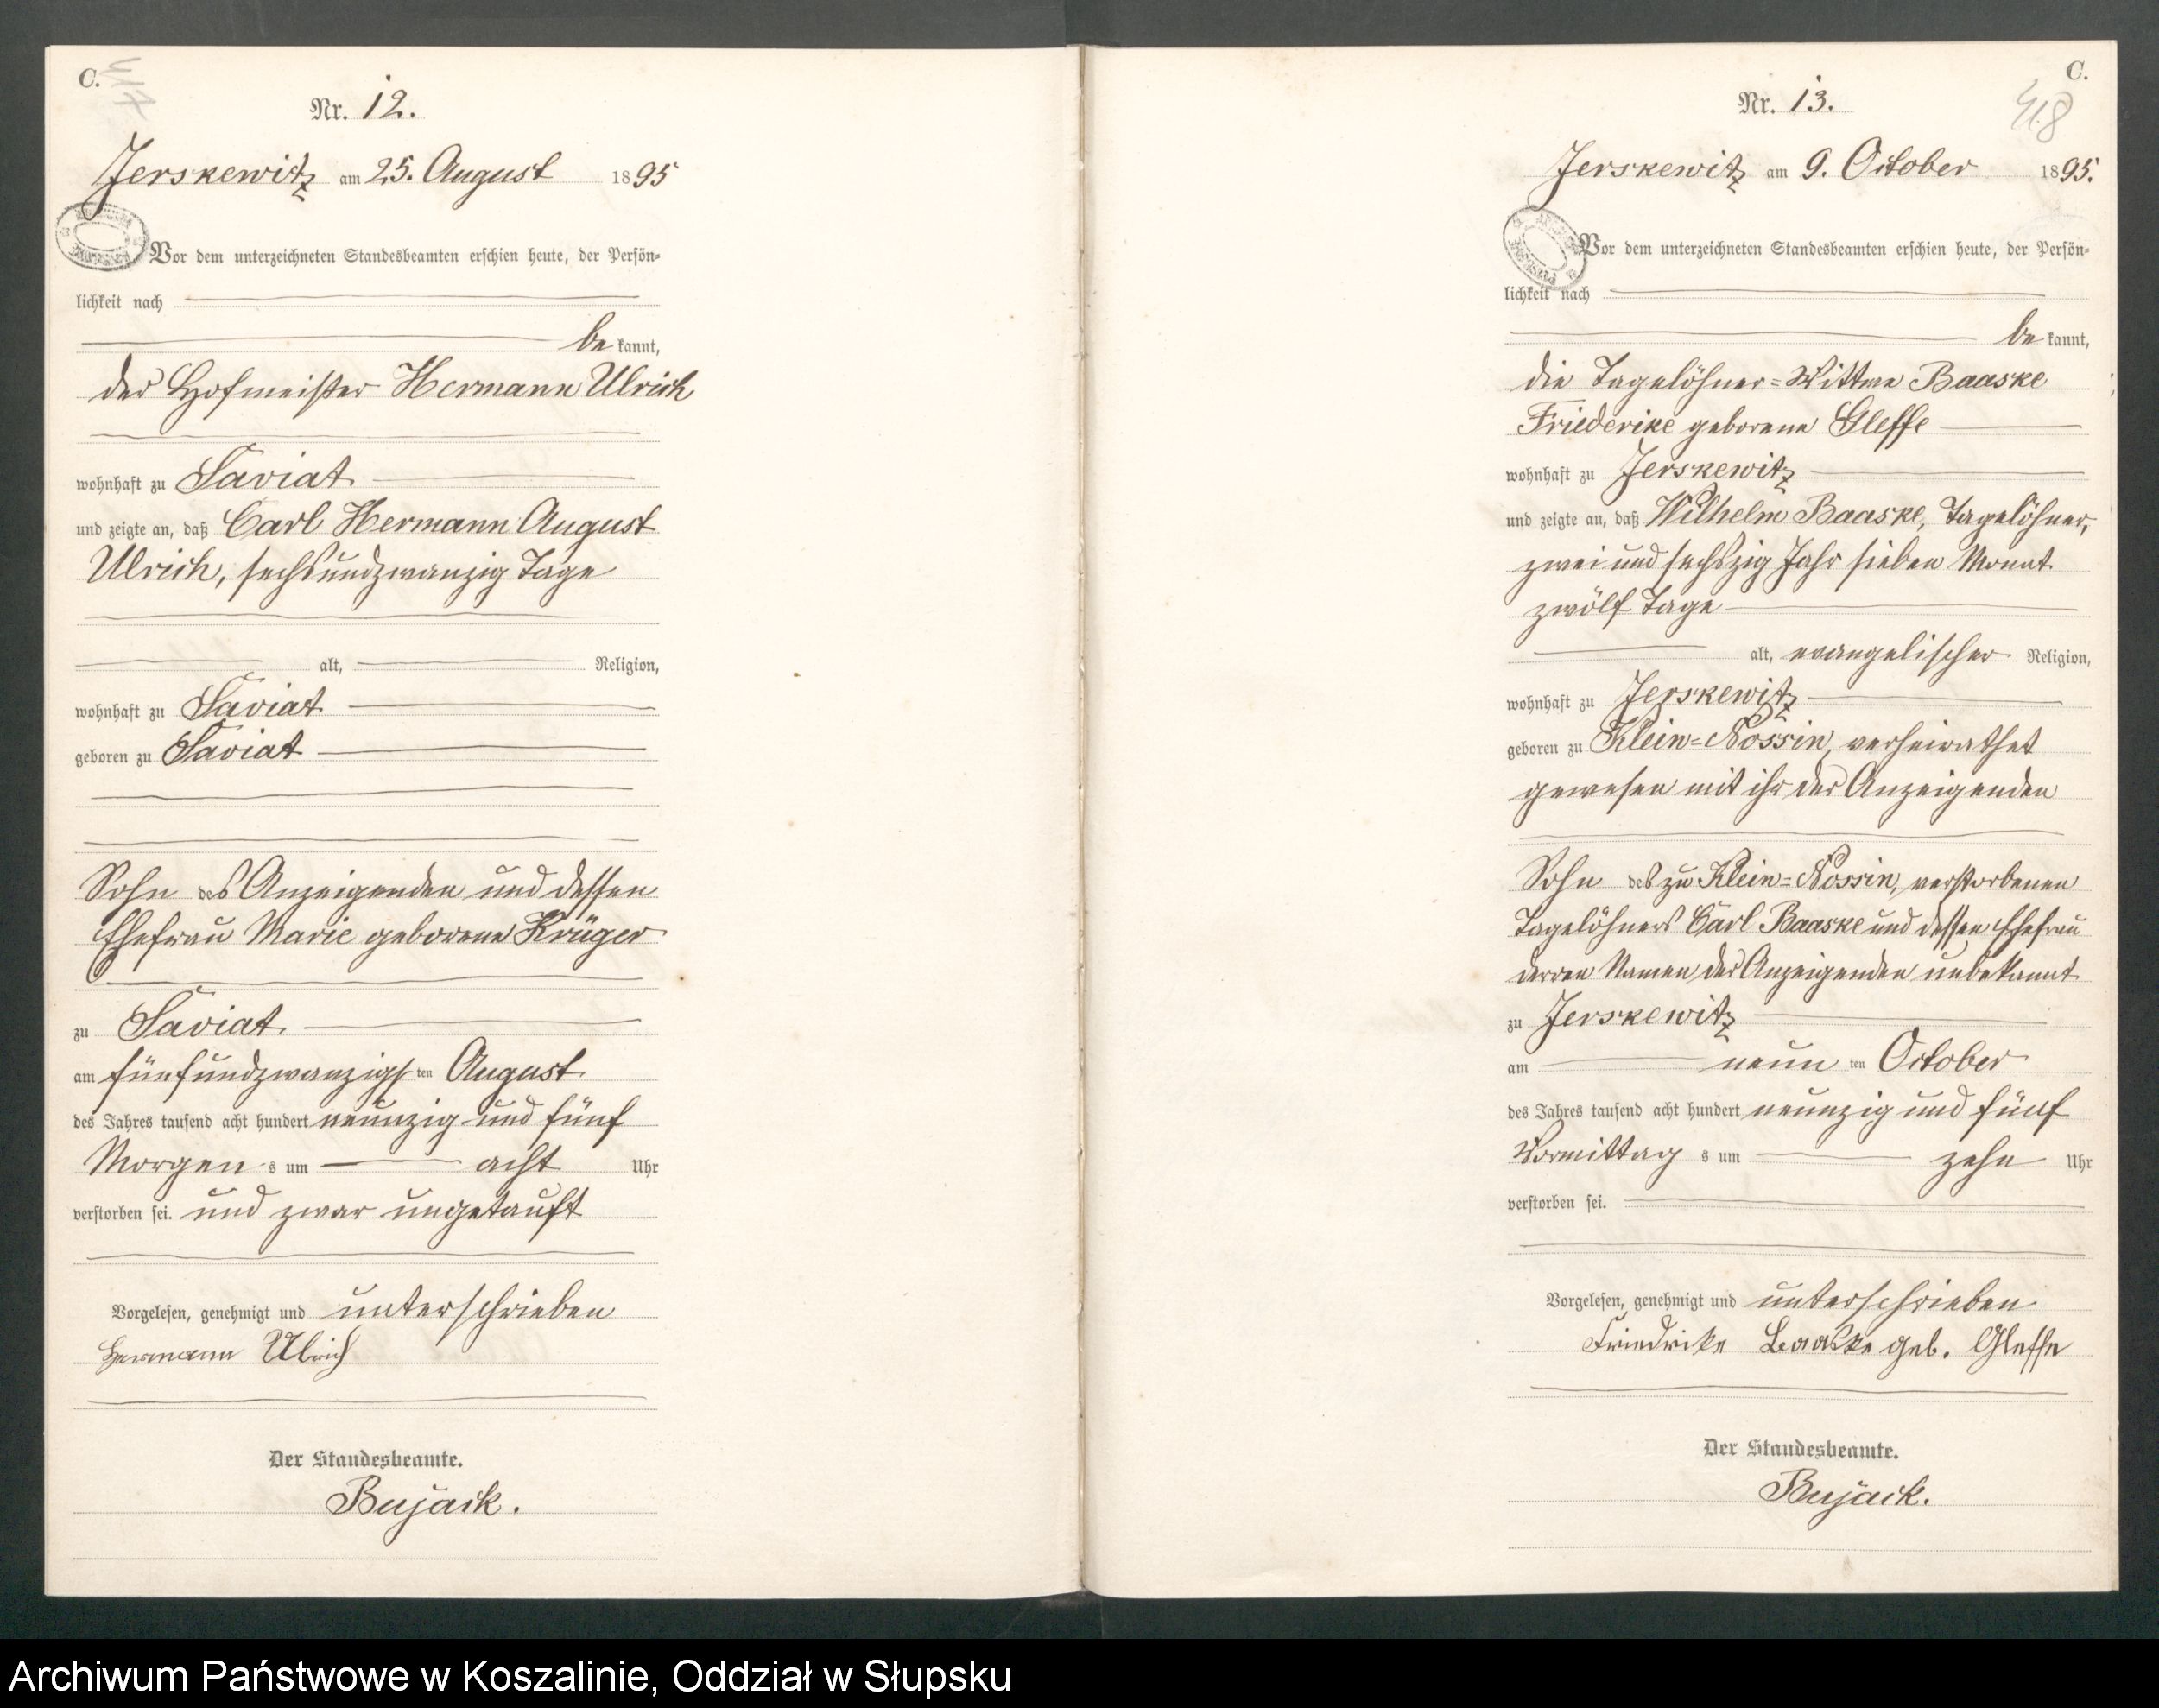 C.
Nr. 12.
Jerskewitz am 25. August 1895
Vor dem unterzeichneten Standesbeamten erschien heute, der Persön-
lichkeit nach
be kannt,
der Hofmeister Hermann Ulrich
wohnhaft zu Saviat
und zeigte an, daß Carl Hermann August
Ulrich, sechsundzwanzig Tage
alt, Religion,
wohnhaft zu Saviat
geboren zu Saviat
Sohn des Anzeigenden und dessen
Ehefrau Marie geborene Krüger
zu Saviat
am fünfundzwanzigsten August
des Jahres tausend acht hundert neunzig und fünf
Morgens um acht Uhr
verstorben sei. und zwar ungetauft
Vorgelesen, genehmigt und unterschrieben
Hermann Ulrich
Der Standesbeamte.
Bujack.
C.
418
Nr. 13.
Jerskewitz am 9. October 1895.
Vor dem unterzeichneten Standesbeamten erschien heute, der Persön-
lichkeit nach
be kannt,
die Tagelöhner-Wittwe Baaske
Friederike geborene Gleffe
wohnhaft zu Jerskewitz
und zeigte an, daß Wilhelm Baaske, Tagelöhner,
zwei und sechszig Jahr sieben Monat
zwölf Tage
alt, evangelischer Religion,
wohnhaft zu Jerskewitz
geboren zu Klein-Nossin, verheirathet
gewesen mit ihr der Anzeigenden
Sohn des zu Klein-Nossin, verstorbenen
Tagelöhners Carl Baaske und dessen Ehefrau
derren Namen der Anzeigenden unbekannt
zu Jerskewitz
am neunten October
des Jahres tausend acht hundert neunzig und fünf
Vormittags um zehn Uhr
verstorben sei.
Vorgelesen, genehmigt und unterschrieben
Friedrike Baaske geb. Gleffe
Der Standesbeamte.
Bujack.
Archiwum Państwowe w Koszalinie, Oddział w Słupsku